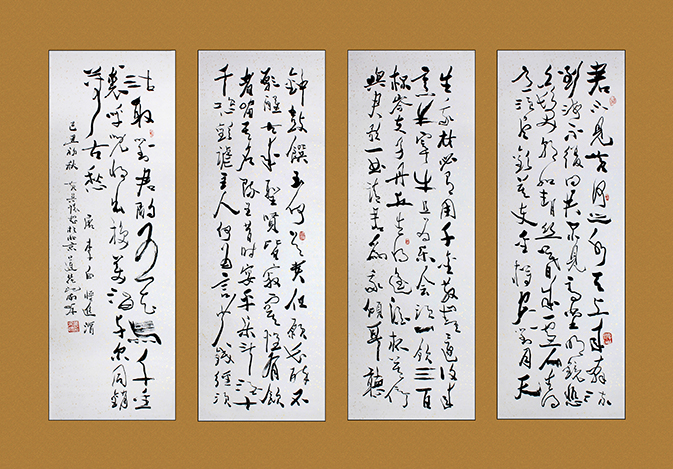 君不見黃河之水天上來奔流
到海不復回君不見高堂明鏡悲
白髮朝如青絲暮成雪人生得
意須盡歡莫使金樽空對月天
生我材必有用千金散盡還復來
烹羊宰牛且為樂會須一飲三百
杯岑夫子丹丘生將進酒杯莫停
與君歌一曲請君為我傾耳聽
鐘鼓饌玉何足貴但願長醉不
願醒古來聖賢皆寂寞惟有飲
者留其名陳王昔時宴平樂斗酒十
千恣歡謔主人何為言少錢徑須
沽取對君酌五花馬千金
裘呼兒將出換美酒與爾同銷
萬古愁
唐李白將進酒
己丑初秋於北京